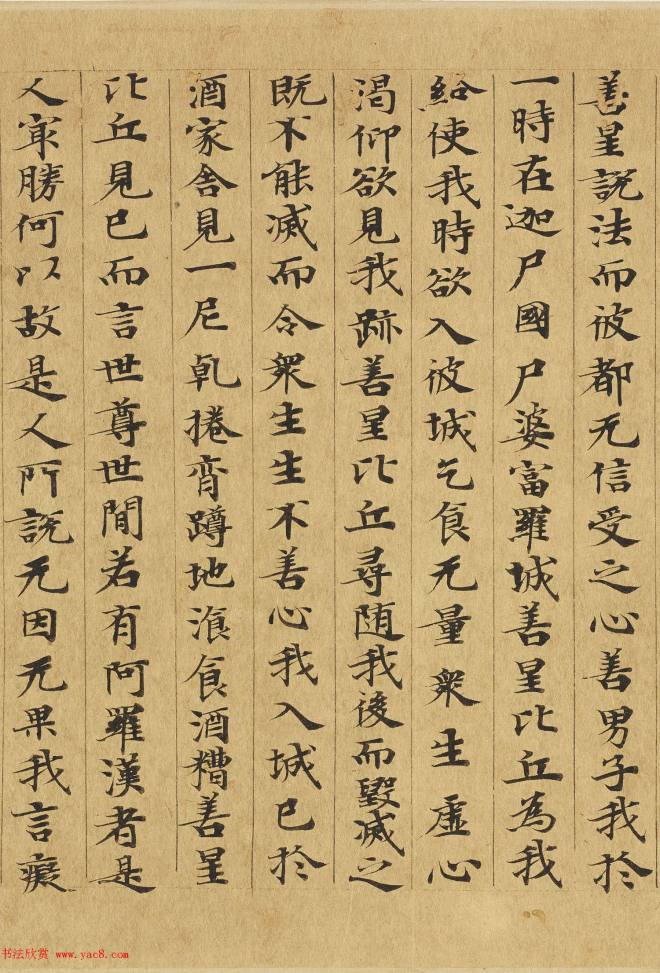 善星說法而彼都无信受之心善男子我於
一時在迦尸國尸婆富羅城善星比丘為我
給使我時欲入彼城乞食无量衆生虛心
渴仰欲見我跡善星比丘尋随我後而毀滅之
既不能滅而令衆生生不善心我入城已於
酒家舍見一尼乹捲脊蹲地飡食酒糟善星
比丘見已而言世尊世間若有阿羅漢者是
人㝡勝何以故是人所說无因无果我言癡
书法欣赏 www.yac8.com